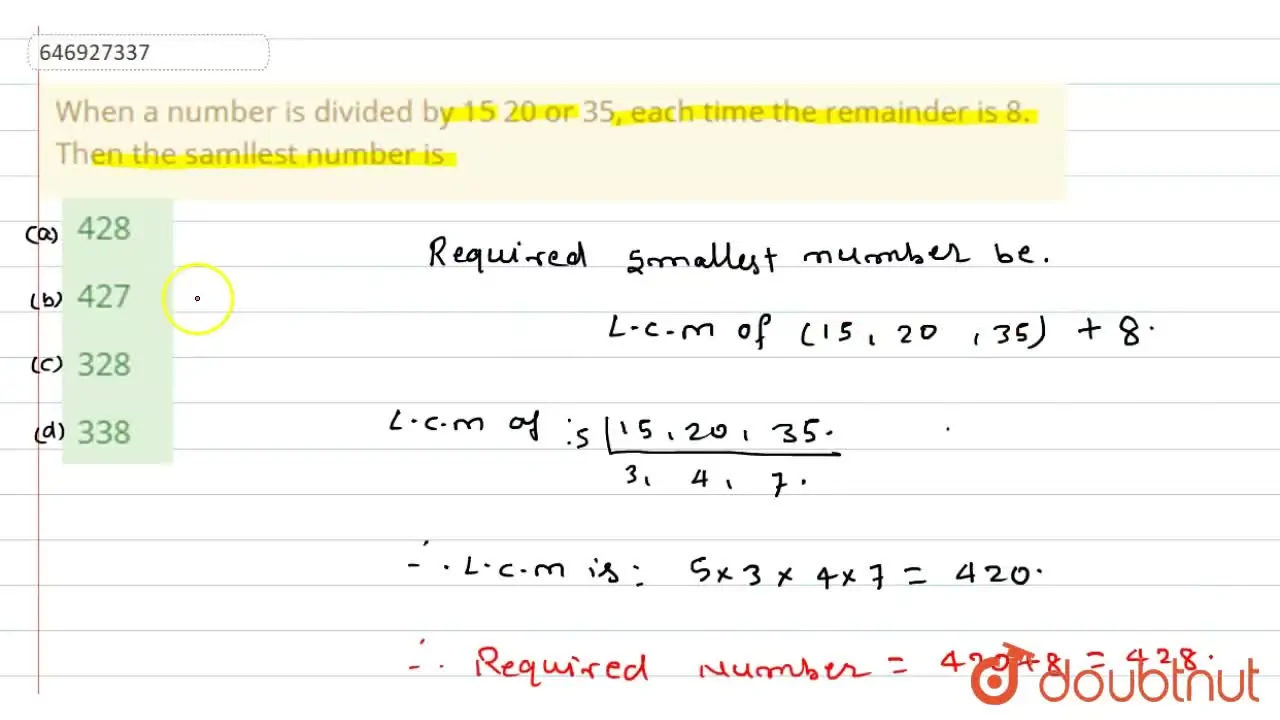 646927337
When a number is divided by 15 20 or 35, each time the remainder is 8.
Then the samllest number is
(a) 428
Required smallest number be.
(b) 427
L.c.m of (15, 20, 35) + 8.
(c) 328
L.c.m of : 5 | 15, 20, 35.
(d) 338
3, 4, 7.
∴ L.c.m is: 5 x 3 x 4 x 7 = 420.
∴ Required Number = 420+8 = 428.
doubtnut